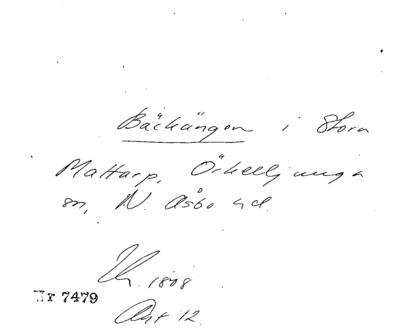 Bäckängen i Stora
Mattarp, Örkelljunga
sn, N. Åsbo hd.
1808
Nr 7479
Akt 12.